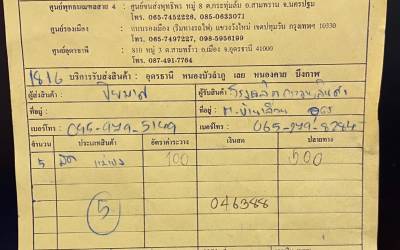 ศูนย์พุทธมณฑลสาย 4 : ศูนย์ขนส่งพุทธิพร หมู่ 8 ต.กระทุ่มล้ม อ.สามพราน จ.นครปฐม
โทร. 065-7452228, 085-0633071
ศูนย์รองเมือง : ถนนรองเมือง (ริมทางรถไฟ) แขวงวังใหม่ เขตปทุมวัน กรุงเทพฯ 10330
โทร. 065-7497227, 098-5956199
ศูนย์อุดรธานี : 810 หมู่ 3 ต.สามพร้าว อ.เมือง จ.อุดรธานี 41000
โทร. 087-491-7764
1816 บริการรับส่งสินค้า : อุดรธานี หนองบัวลำภู เลย หนองคาย บึงกาฬ
ผู้ส่งสินค้า ผู้รับสินค้า
ที่อยู่ ที่อยู่
เบอร์โทร 095-979-5149 เบอร์โทร 065-979-8244
จำนวน ประเภทสินค้า อัตราค่าระวาง เงินสด ปลายทาง
5 มัด 100 500
5 046388